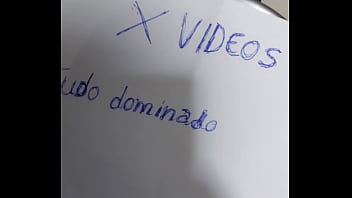 X VIDEOS
Tudo dominado